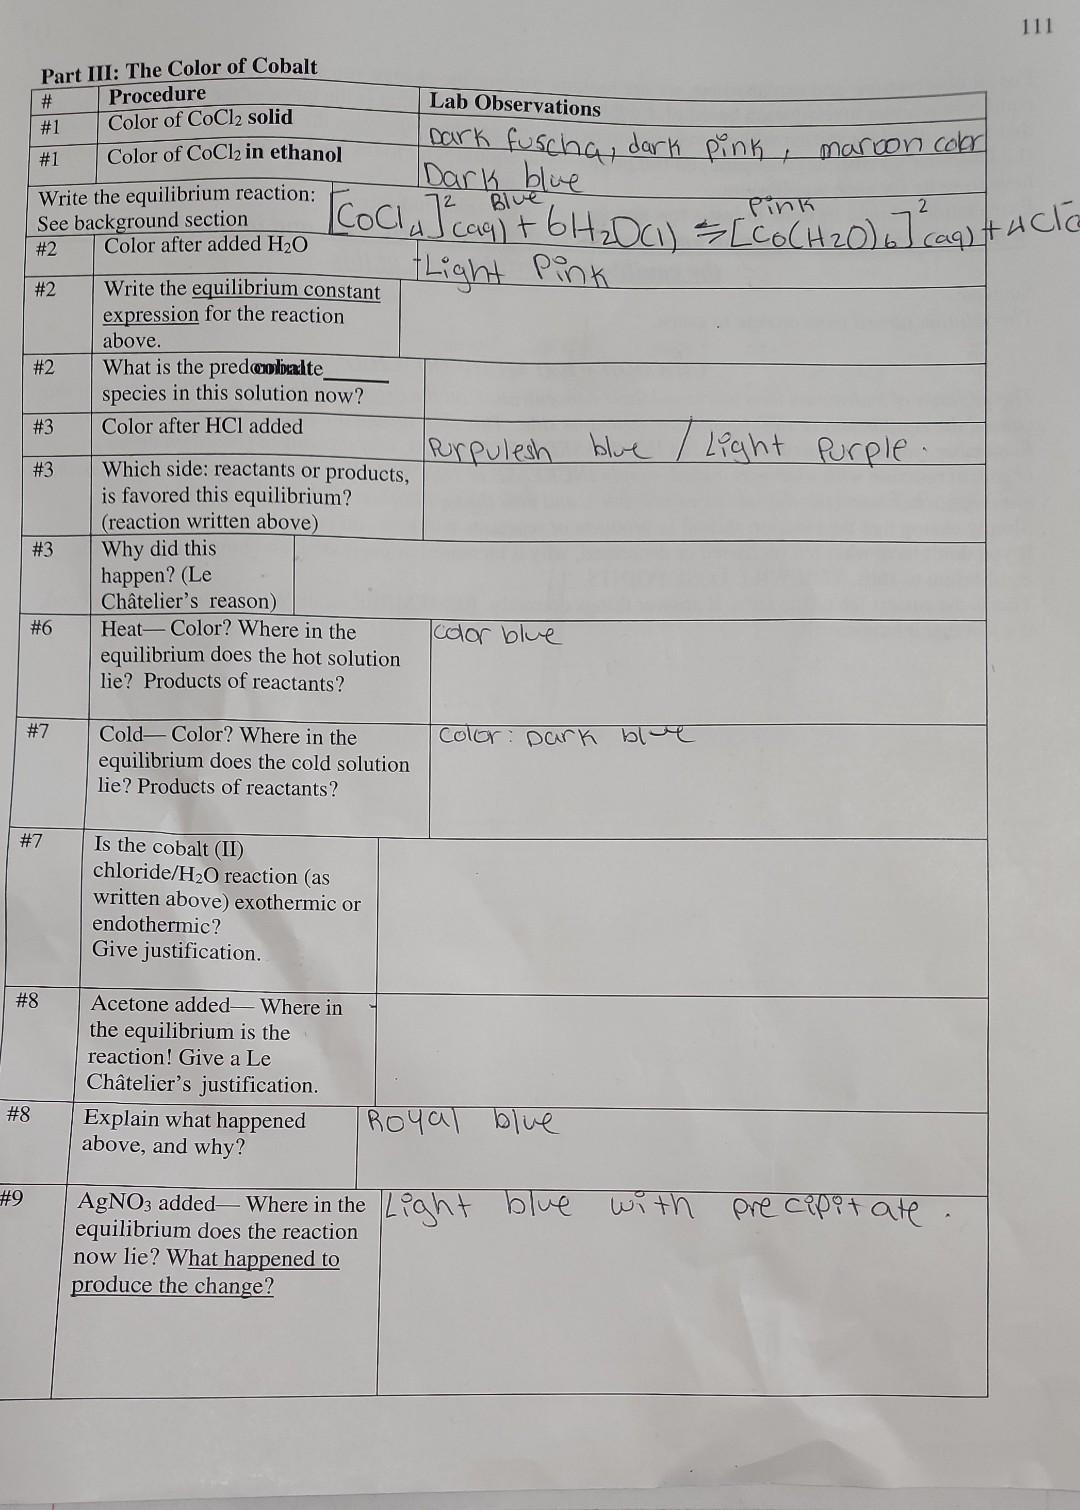 111
Part III: The Color of Cobalt
# Procedure Lab Observations
#1 Color of CoCl₂ solid Dark fuscha, dark pink, maroon color
#1 Color of CoCl₂ in ethanol Dark blue
Write the equilibrium reaction:
See background section
Blue Pink
[CoCl₄]² (aq) + 6H₂O(l) ⇌ [Co(H₂O)₆]² (aq) + 4Cl
#2 Color after added H₂O Light Pink
#2 Write the equilibrium constant
expression for the reaction
above.
#2 What is the
species in this solution now?
#3 Color after HCl added Purpulesh blue / Light Purple.
#3 Which side: reactants or products,
is favored this equilibrium?
(reaction written above)
#3 Why did this
happen? (Le
Châtelier's reason)
#6 Heat— Color? Where in the color blue
equilibrium does the hot solution
lie? Products of reactants?
#7 Cold— Color? Where in the color: Dark blue
equilibrium does the cold solution
lie? Products of reactants?
#7 Is the cobalt (II)
chloride/H₂O reaction (as
written above) exothermic or
endothermic?
Give justification.
#8 Acetone added— Where in
the equilibrium is the
reaction! Give a Le
Châtelier's justification.
#8 Explain what happened Royal blue
above, and why?
#9 AgNO₃ added— Where in the Light blue with precipitate.
equilibrium does the reaction
now lie? What happened to
produce the change?